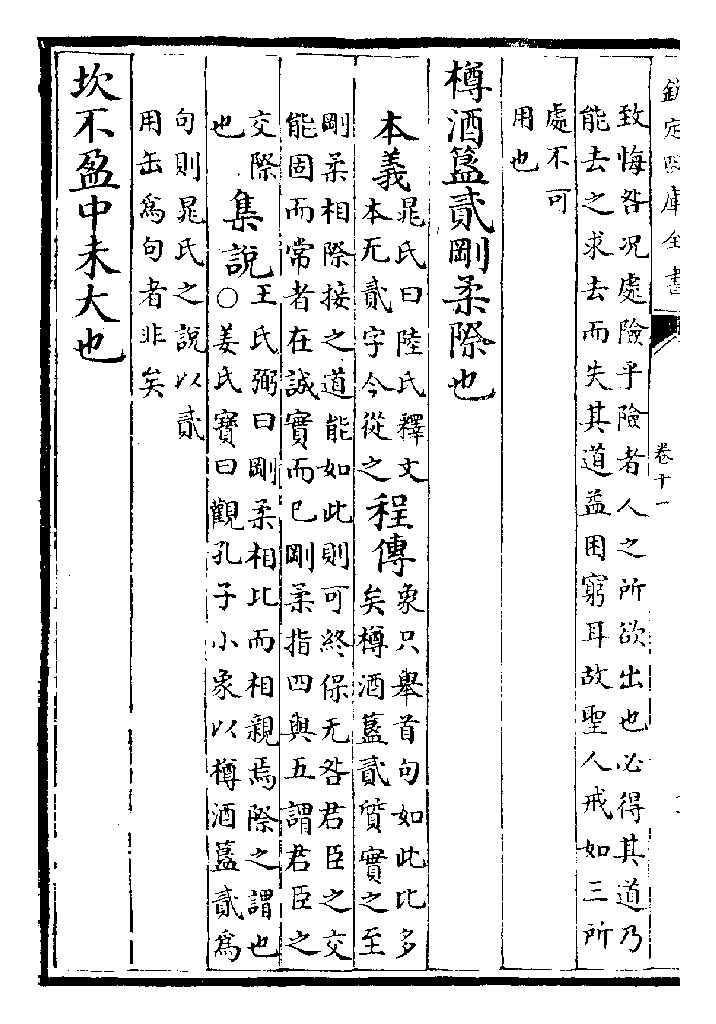 欽定四庫全書
卷十一
致悔咎况處險乎險者人之所欲出也必得其道乃
能去之求去而失其道益困窮耳故聖人戒如三所
處不可
用也
樽酒簋貳剛柔際也
本義
晁氏曰陸氏釋文
本无貳字今從之
程傳
象只舉首句如此比多
矣樽酒簋貳質實之至
剛柔相際接之道能如此則可終保无咎君臣之交
能固而常者在誠實而已剛柔指四與五謂君臣之
交際
也
集說
王氏弼曰剛柔相比而相親焉際之謂也
○姜氏寶曰觀孔子小象以樽酒簋貳為
句則晁氏之說以貳
用缶為句者非矣
坎不盈中未大也